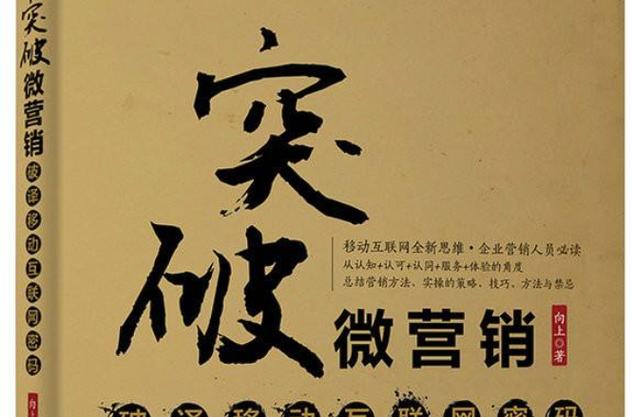 突破微营销
破译移动互联网密码
向上
突破
移动互联网全新思维·企业营销人员必读
从认知+认可+认同+服务+体验的角度
总结营销方法、实操的策略、技巧、方法与禁忌
微营销
向上 著
破译移动互联网密码